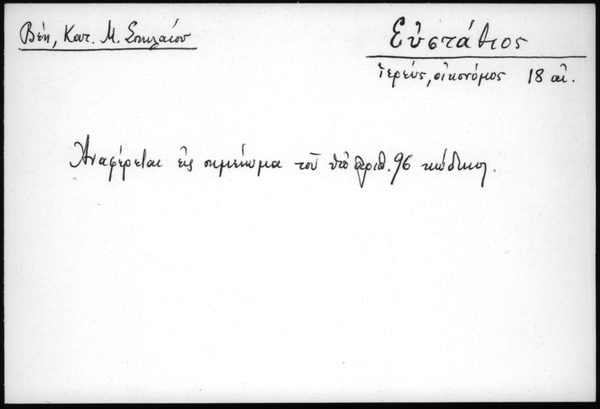 Βέη, Κατ. Μ. Σπηλαίου
Εὐστάθιος
ἱερεύς, οἰκονόμος 18 αἰ.
Ἀναφέρεται εἰς σημείωμα τοῦ ὑπ' ἀριθ. 96 κώδικος.